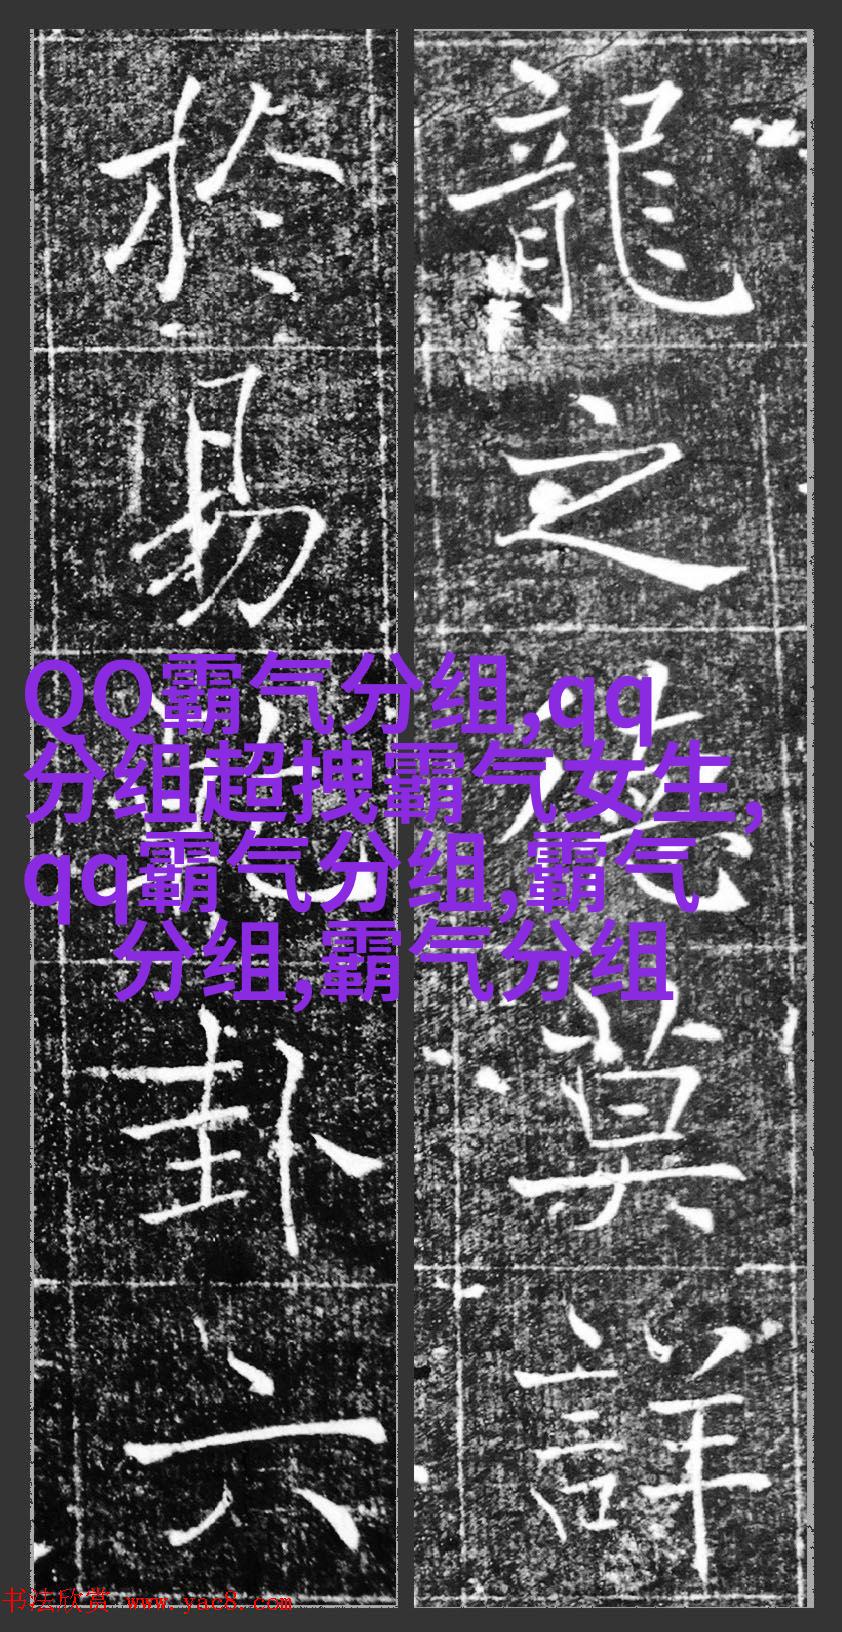 龍之德莫詳
於易
卦六
QQ霸气分组,qq
分组超拽霸气女生,
qq霸气分组,霸气
分组,霸气分组
书法欣赏 www.yac8.com